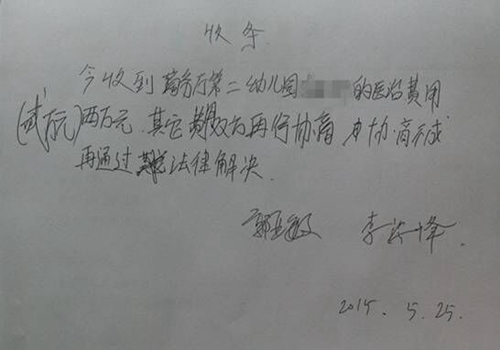 收条
今收到商务厅第二幼儿园的医治费用
(贰万元)两万元.其它费用再行协商 协商不成
再通过法律解决.
郭亚敏 李洪峰.
2015.5.25.